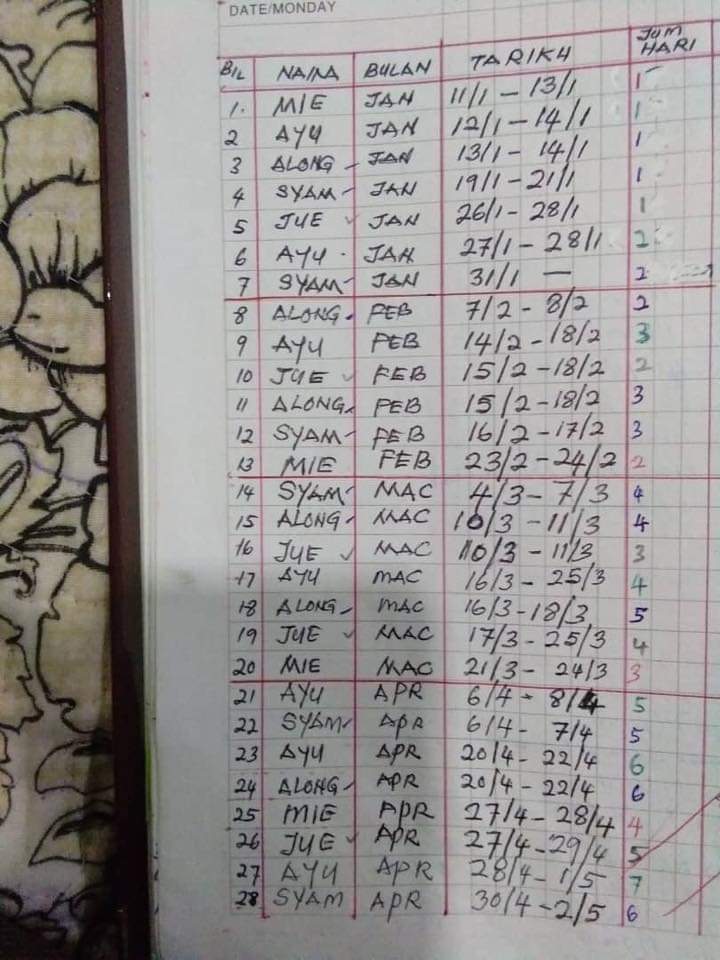 DATE/MONDAY
BIL NAMA BULAN TARIKH JUM HARI
1. MIE JAN 11/1 - 13/1 1
2 AYU JAN 12/1 - 14/1 1
3 ALONG JAN 13/1 - 14/1 1
4 SYAM JAN 19/1 - 21/1 1
5 JUE JAN 26/1 - 28/1 1
6 AYU JAN 27/1 - 28/1 2
7 SYAM JAN 31/1 — 2
8 ALONG FEB 7/2 - 8/2 2
9 AYU FEB 14/2 - 18/2 3
10 JUE FEB 15/2 - 18/2 2
11 ALONG FEB 15/2 - 18/2 3
12 SYAM FEB 16/2 - 17/2 3
13 MIE FEB 23/2 - 24/2 2
14 SYAM MAC 4/3 - 7/3 4
15 ALONG MAC 10/3 - 11/3 4
16 JUE MAC 10/3 - 11/3 3
17 AYU MAC 16/3 - 25/3 4
18 ALONG MAC 16/3 - 18/3 5
19 JUE MAC 17/3 - 25/3 4
20 MIE MAC 21/3 - 24/3 3
21 AYU APR 6/4 - 8/4 5
22 SYAM APR 6/4 - 7/4 5
23 AYU APR 20/4 - 22/4 6
24 ALONG APR 20/4 - 22/4 6
25 MIE APR 27/4 - 28/4 4
26 JUE APR 27/4 - 29/4 5
27 AYU APR 28/4 - 1/5 7
28 SYAM APR 30/4 - 2/5 6